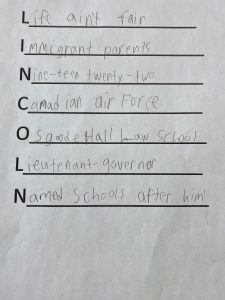 Life ain't fair
Immigrant parents
Nine-teen twenty-two
Canadian air Force
Osgoode Hall Law School
Lieutenant-governor
Named Schools after him!